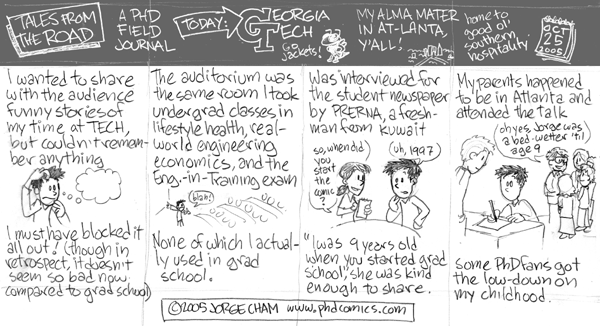 TALES FROM
THE ROAD
A PHD
FIELD
JOURNAL
TODAY:
GT
GEORGIA
TECH
Go
Jackets!
MY ALMA MATER
IN AT-LANTA,
Y'ALL!
home to
good ol'
southern
hospitality
OCT
25
2005
I wanted to share
with the audience
funny stories of
my time at TECH,
but couldn't remem-
ber anything
I must have blocked it
all out! (though in
retrospect, it doesn't
seem so bad now
compared to grad school)
The auditorium was
the same room I took
undergrad classes in
lifestyle health, real-
world engineering
economics, and the
Eng.-in-Training exam
blah!
None of which I actual-
ly used in grad
school.
Was interviewed for
the student newspaper
by PRERNA, a fresh-
man from Kuwait
so, when did
you
start
the
comic
?
(uh, 1997)
"I was 9 years old
when you started grad
school", she was kind
enough to share.
My parents happened
to be in Atlanta and
attended the talk
oh yes, Jorge was
a bed-wetter 'til
age 9
some PhD fans got
the low-down on
my childhood.
©2005 JORGE CHAM www.phdcomics.com